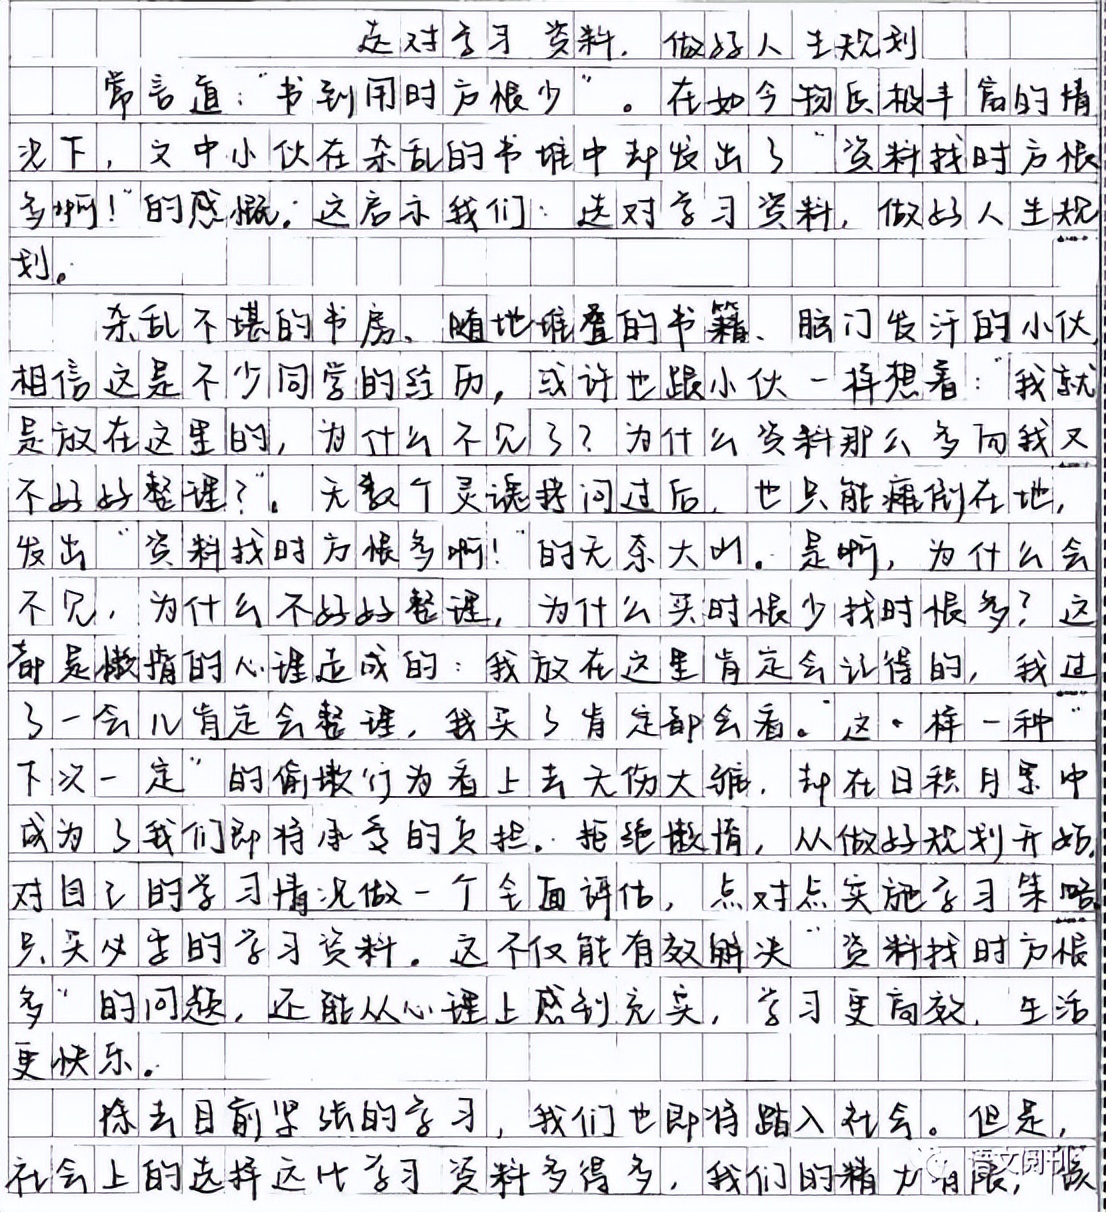 选对学习资料，做好人生规划
常言道：“书到用时方恨少”。在如今物民极丰富的情
况下，文中小伙在杂乱的书堆中却发出了“资料找时方恨
多啊！”的感慨。这启示我们：选对学习资料，做好人生规
划。
杂乱不堪的书房、随地堆叠的书籍、脑门发汗的小伙，
相信这是不少同学的经历，或许也跟小伙一样想着：“我就
是放在这里的，为什么不见了？为什么资料那么多而我又
不好好整理？”。无数个灵魂拷问过后，也只能瘫倒在地，
发出“资料找时方恨多啊！”的无奈大叫。是啊，为什么会
不见，为什么不好好整理，为什么买时恨少找时恨多？这
都是懒惰的心理造成的：我放在这里肯定会记得的，我过
了一会儿肯定会整理，我买了肯定都会看。这样一种“
下次一定”的偷懒行为看上去无伤大雅，却在日积月累中
成为了我们即将承受的负担。拒绝懒惰，从做好规划开始，
对自己的学习情况做一个全面评估，点对点实施学习策略
只买必要的学习资料。这不仅能有效解决“资料找时方恨
多”的问题，还能从心理上感到充实，学习更高效，生活
更快乐。
除去目前紧张的学习，我们也即将踏入社会。但是，
社会上的选择远比学习资料多得多，我们的精力有限，该
语文阅刊